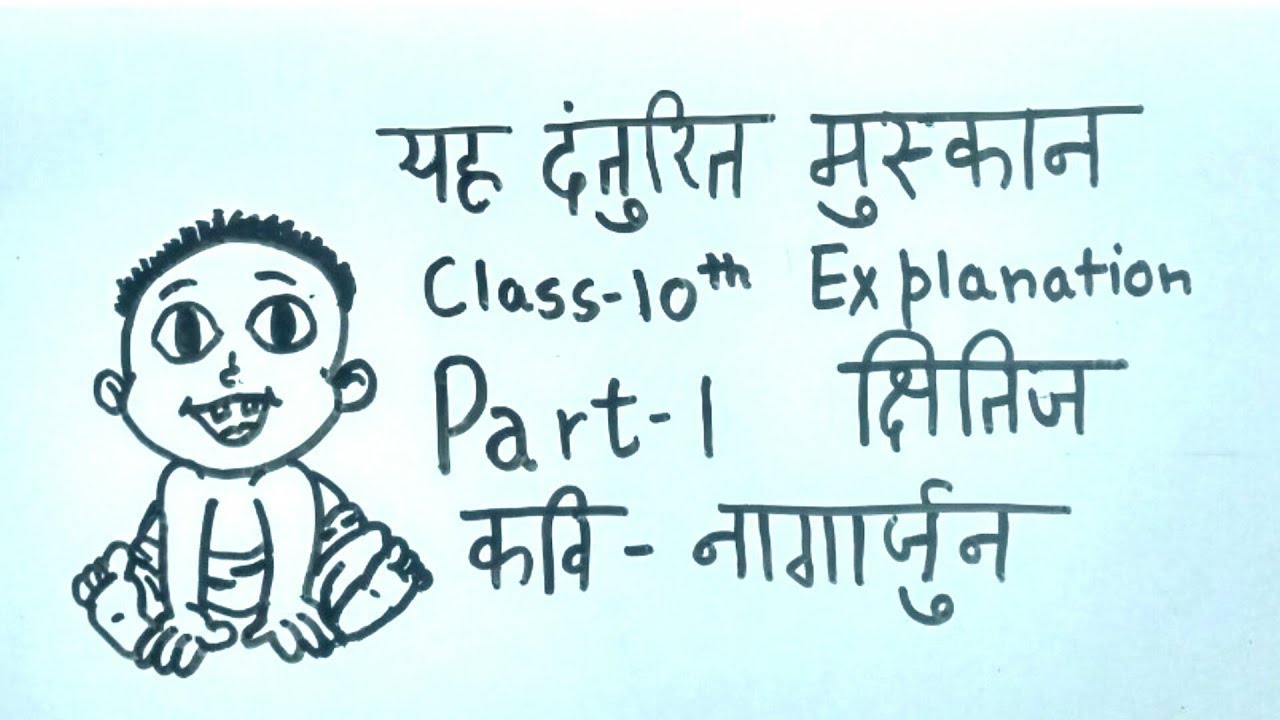 यह दंतुरित मुस्कान
Class-10th Explanation
Part-1 क्षितिज
कवि - नागार्जुन